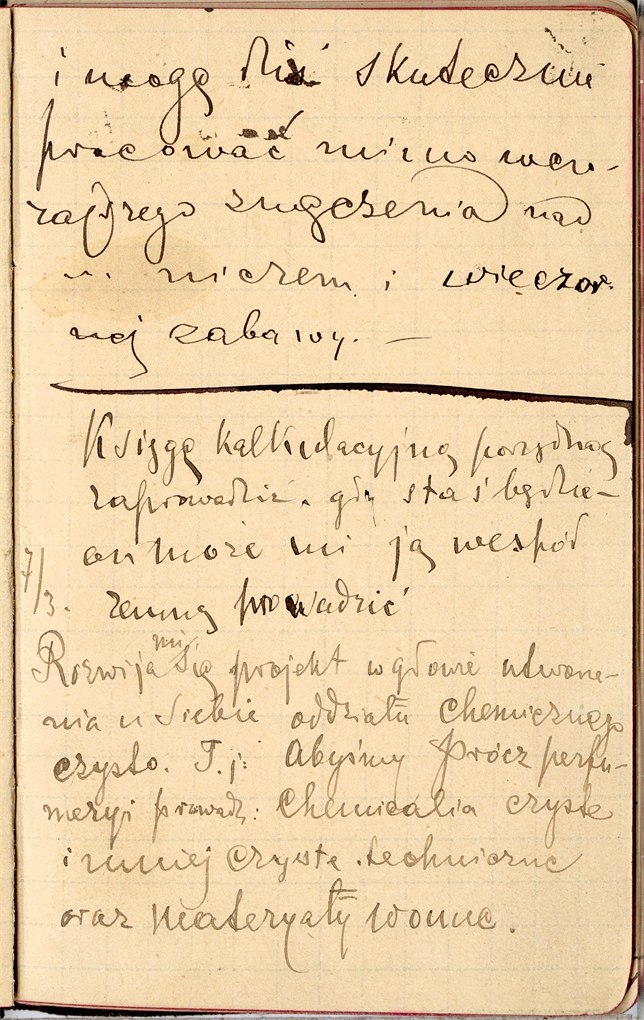 i mogę dziś skutecznie
pracować mimo wczo-
rajszego zmęczenia nad
niczem i wieczor-
nej zabawy. —
Księgę kalkulacyjną porządną
zaprowadzić. gdy staś będzie —
on może mi ją wespół
7/3. zemną prowadzić
Rozwija mi się projekt w głowie utworze-
nia u siebie oddziału chemicznego
czysto. T.j: Abyśmy prócz perfu-
meryi prowadz: Chemicalia czyste
i mniej czyste. techniczne
oraz materyały wonne.